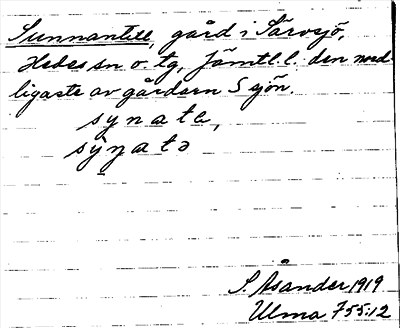 Sunnantill, gård i Särvsjö,
Hedes sn o. tg, Jämtl. l. den nord-
ligaste av gårdarn S sjön.
synate,
sy̤natə
S. Åsander 1919
Ulma 755:12